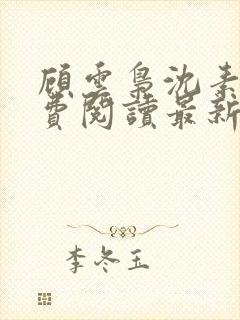 顾云枭沈素
费阅读最新
李冬玉